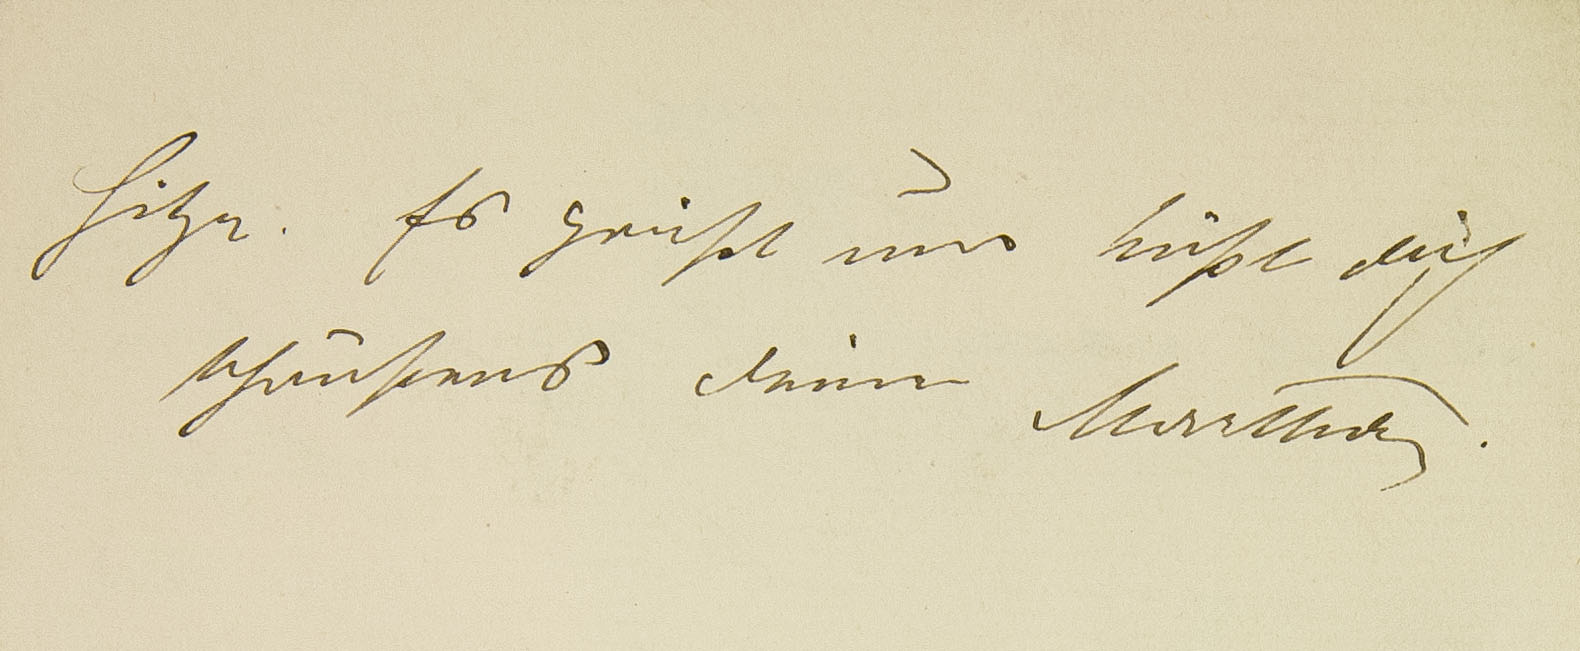 Hitze. Es grüßt und küßt dich
thausend deine Martha.